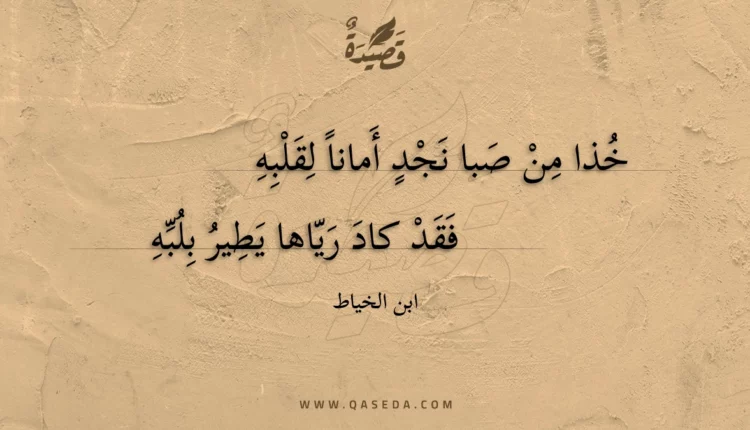 قَصِيْدَةٌ
خُذا مِنْ صَبا نَجْدٍ أَماناً لِقَلْبِهِ
فَقَدْ كادَ رَيّاها يَطِيرُ بِلُبِّهِ
ابن الخياط
WWW.QASEDA.COM